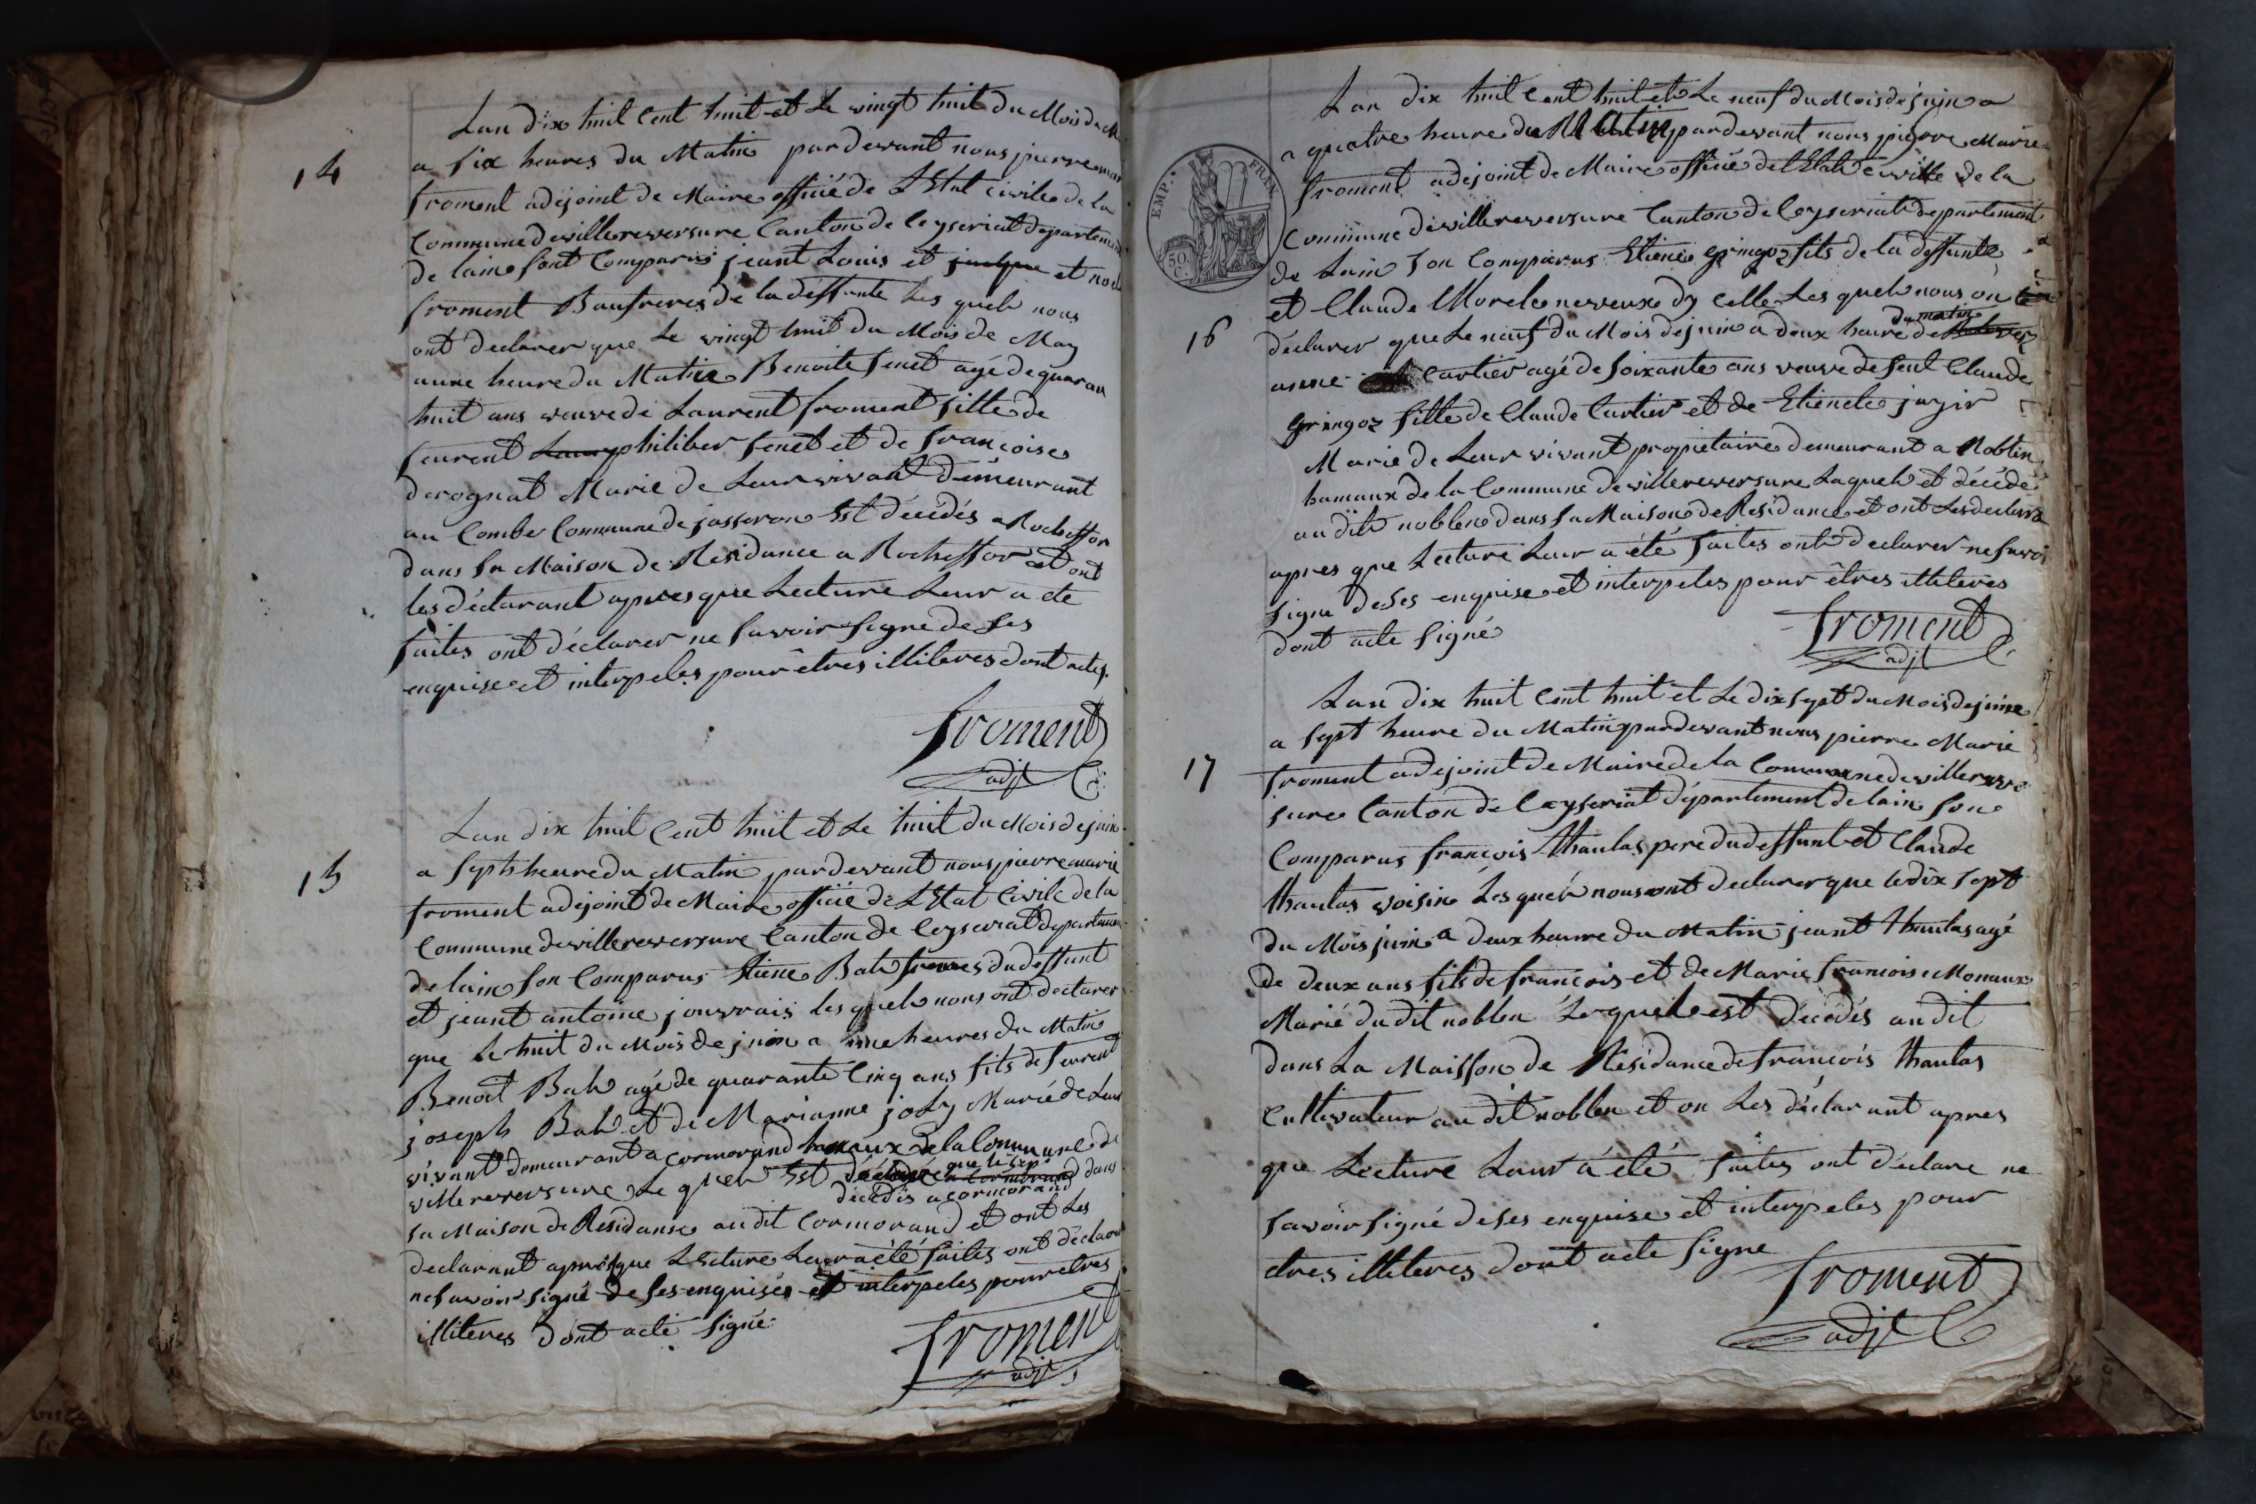 14
Lan dix huit Cent huit et Le vingt huit du Mois de
a six heures du Matin pardevant nous pierre
froment adejoint de Maire officié de L'Etat civile de la
Commune de villereversure Canton de Ceyseriat
de lain sont Comparus jeant Louis et jacque et
froment Baufreres de la deffunte Les quels nous
ont declarer que Le vingt huit du Mois de May
a une heure du Matin Benoite Senet agé de
huit ans veuve de Laurent froment fille de
feurent philiber Senet et de francoise
derognat Marie de Leur vivant demeurant
au Combe Commune de jasseron Est décédés a Rocheffor
dans sa Maison de Residance a Rocheffor et ont
les déclarant apres que Lecture Leur a ete
faites ont déclarer ne savoir signe de ses
enquise et interpeles pour êtres illiteres dont acte
froment
adjt
15
Lan dix huit Cent huit et Le huit du Mois de juin
a sept heure du Matin pardevant nous pierre marie
froment adejoint de Maire officié de L'Etat Civile de la
Commune de villereversure Canton de Ceyseriat
de lain son Comparus Etiene Bah freres du deffunt
et jeant antoine jouvrais les quels nous ont declarer
que Le huit du Mois de juin a une heures du Matin
Benoit Bah agé de quarante Cinq ans fils de feurent
joseph Bah et de Marianne joly Marié de Leur
vivant demeurant a Cormorand hamaux de la Commune de
villereversure Le quel Est
décédés a cormorand dans
sa Maison de Residanse audit Cormorand et ont Les
declarant apres que Lecture Leur a été faites ont déclarer
ne savoir signé de ses enquises et interpeles pour etres
illiteres dont acte signé
froment
adjt
EMP. FRAN.
50 C.
Lan dix huit Cent huit et Le neuf du Mois de juin a
a quatre heure du Matin pardevant nous pierre Marie
froment adejoint de Maire officié de l'Etat Civille de la
Commune de villereversure Canton de Ceyseriat departement
de Lain son Comparus Etiene gringoz fils de la deffunte
et Claude Morele neveux dy Celle Les quels nous on
16
déclarer que Le neuf du Mois de juin a deux heure du matin
anne Cartier agé de soixante ans veuve de feut Claude
gringoz fille de Claude Cartier et de Etienete
Marie de Leur vivant propietaire demeurant a Noblen
hamaux de la Commune de villereversure Laquele et décédé
audit noblen dans sa Maison de Residance et ont Les
apres que Lecture Leur a été faites ont declarer ne savoi
signe de ses enquise et interpeles pour êtres illiteres
dont acte signé
froment
adjt
Lan dix huit Cent huit et Le dix sept du Mois de juin
a sept heure du Matin pardevant nous pierre Marie
17
froment adejoint de Maire de la Commune de villerever
sure Canton de Ceyseriat département de lain son
Comparus francois thaulas pere du deffunt et Claude
thaulas voisin Les quels nous ont declarer que le dix sept
du Mois juin a deux heure du Matin jeant thaulas agé
de deux ans fils de francois et de Marie francoise Monaux
Marié du dit noblen Le quele est décédés audit
dans La Maisson de Residance de francois thaulas
Cultivateur au dit noblen et on Les déclarant apres
que Lecture Leur a été faites ont déclare ne
savoir signé de ses enquise et interpeles pour
etres illiteres dont acte signe
froment
adjt